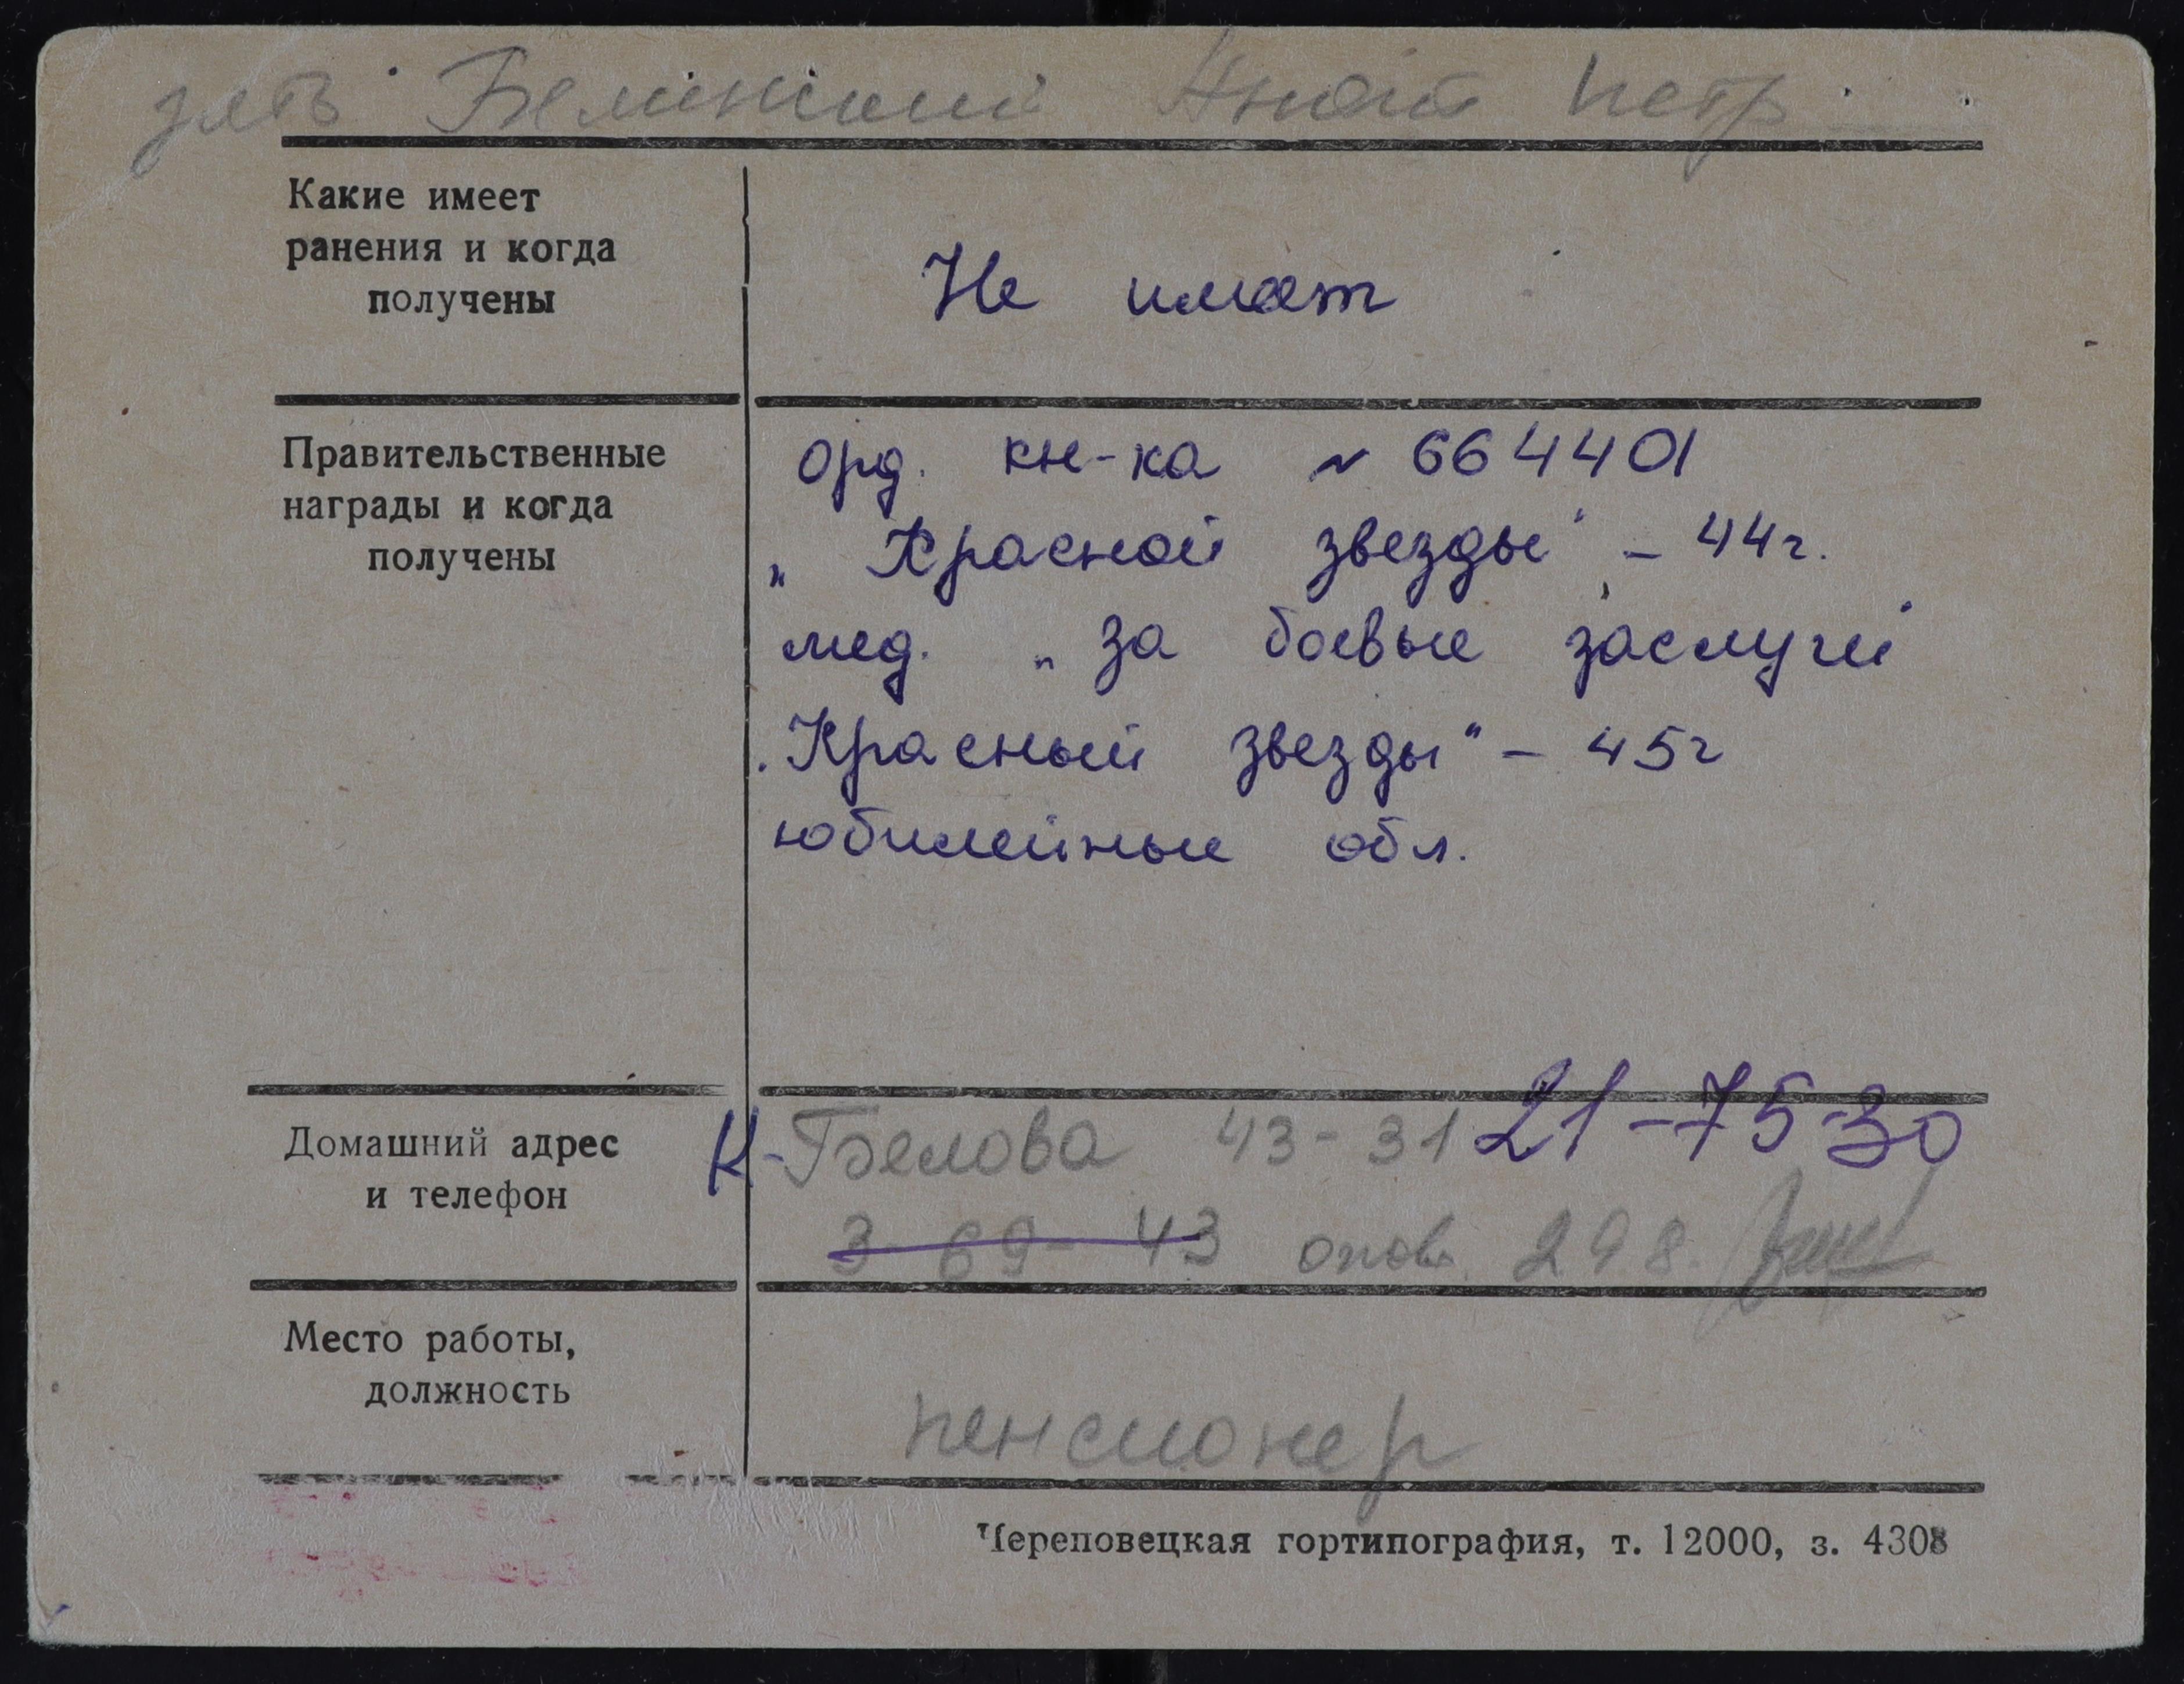 зять Белинский Анат Петр.
Какие имеет
ранения и когда
получены
Не имеет
Правительственные
награды и когда
получены
орд. кн-ка N 664401
„ Красной звезды" - 44г.
мед. „За боевые заслуги"
„Красный звезды" - 45г
юбилейные обл.
Домашний адрес
и телефон
К-Белова 43-31 21-75-30
3-69-43 298.
Место работы,
должность
пенсионер
Череповецкая гортипография, т. 12000, з. 4308